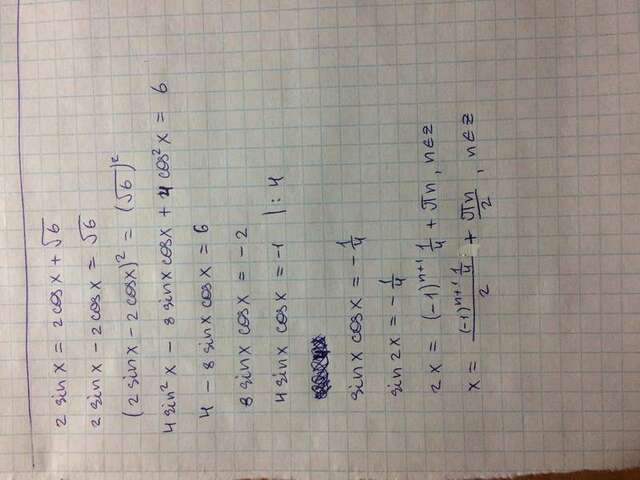 2 sin x = 2 cos x + √6
2 sin x - 2 cos x = √6
(2 sin x - 2 cos x)² = (√6)²
4 sin² x - 8 sin x cos x + 4 cos² x = 6
4 - 8 sin x cos x = 6
8 sin x cos x = -2
4 sin x cos x = -1 | : 4
sin x cos x = - 1/4
sin 2x = - 1/4
2x = (-1)ⁿ⁺¹ 1/4 + πn, n∈z
x = ((-1)ⁿ⁺¹ 1/4)/2 + πn/2, n∈z